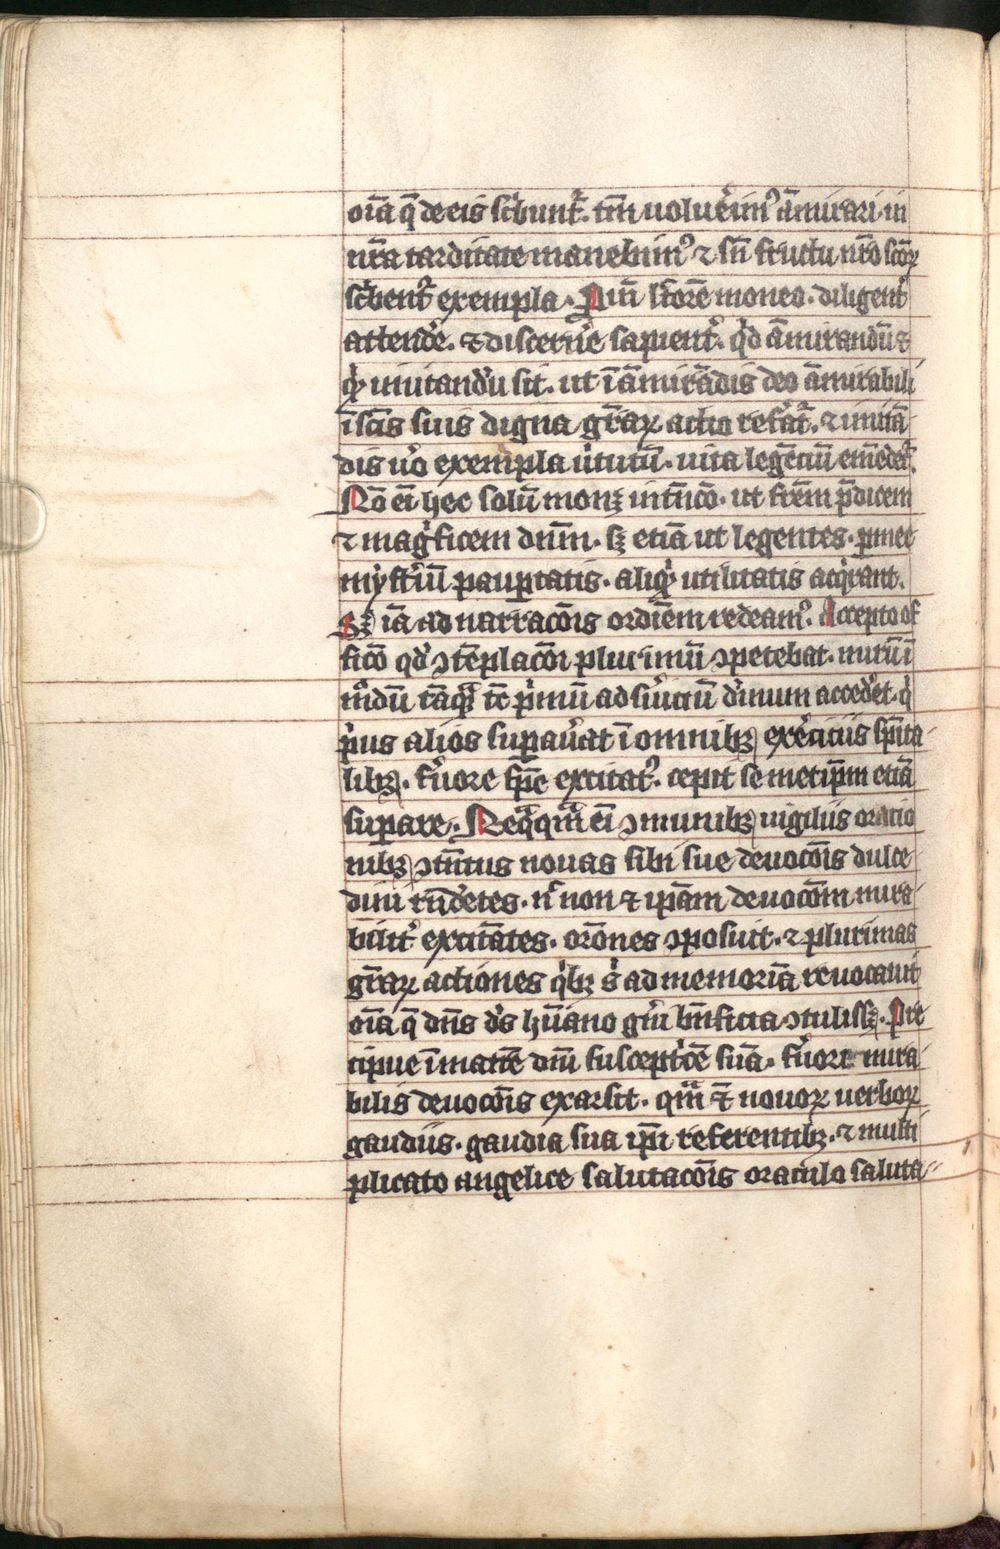 oīa q̄ de eis sc̄bunt᷑. tm̄ uoluẽim᷒ āmirari. in
nr̄a tarditate manebim᷒ ⁊ sn̄ fructu nr̄o scōꝝ
sc̄bent᷑ exempla. Pm̄ lc̄orē moneo. diligent᷑
attendẽ. ⁊ discernẽ sapient᷑. qd̾ āmirandū ⁊
qͥ imitandū sit. ut ī āmirādis deo āmirabili
ī scīs suis digna gr̄aꝝ actio referat᷑. ⁊ imitā-
dis ůo exempla ůtutū. uita legēciū emēdet᷑.
Nō eī hec solū monꝫ intēcō. ut frēm p̄dicem
⁊ magͥficem dn̄m. sꝫ etiā ut legentes. ꝑ mee
mẏst̾iū pauꝑtatis. aliqͥ utilitatis acqͥrant.
Sꝫ iā ad narracōis ordiēm redeam᷒. Accepto of
ficō qd̾ ꝯtēplacōī plurimū ꝯpetebat. mirū ī
mōdū tāqͣ tē pͥmū ad suͥiciū dͥinum accedẽt. qͥ
pͥus alios suꝑau̾at ī omnibꝫ exẽciciis sp̄ita-
libꝫ. fu̾ore sp̄c excitat᷒. cepit se metip̄m etiā
suꝑare. Neqͣqͣm eī ꝯmunibꝫ vigiliis oratio
nibꝫ ꝯtēntus nouas sibi sue deuocōis dulce-
dini rn̄dētes. nͨ non ⁊ ip̄am deuocōm mira-
bilit᷑ excitātes. orōnes ꝯposuit. ⁊ plurimas
gr̄aꝝ actiones qͥbꝫ sͥ ad memoriā reuocauit
oīa q̄ dn̄s dͤs hūano gn̄i bn̄ficia ꝯtulissꝫ. Pre
cipue ī matrē dn̄i susceptͥcē suā. fu̾ore mira-
bilis deuocōis exarsit. qͣm ⁊ nouoꝝ verboꝝ
gaudiis. gaudia sua ip̄i referentibꝫ. ⁊ multi
plicato angelice salutacōis oraculo saluta-